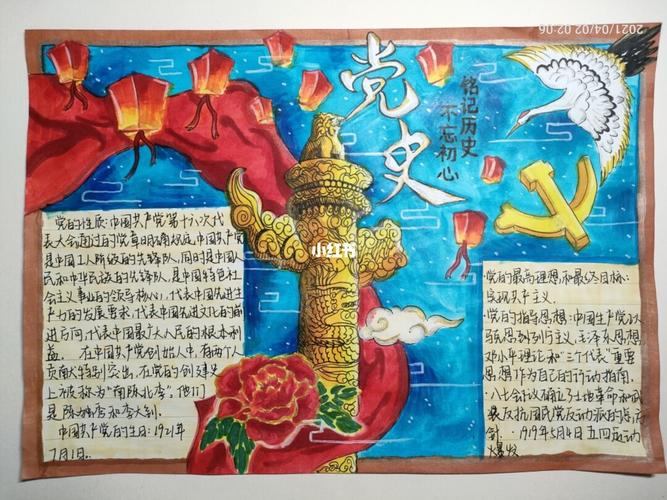 2021/04/02 02:06
党史
铭记历史
不忘初心
小红书
党的性质:中国共产党第十六次代
表大会通过的党章明确规定,中国共产党
是中国工人阶级的先锋队,同时是中国人
民和中华民族的先锋队,是中国特色社
会主义事业的领导核心,代表中国先进生
产力的发展要求,代表中国先进文化的前
进方向,代表中国最广大人民的根本利
益. 在中国共产党创始人中,有两个人
贡献特别突出,在党的创建史
上被称为"南陈北李",他们
是陈独秀和李大钊.
中国共产党的生日:1921年
7月1日.
党的最高理想和最终目标:
实现共产主义.
·党的指导思想:中国共产党以马
克思列宁主义、毛泽东思想、
邓小平理论和"三个代表"重要
思想作为自己的行动指南.
·八七会议确立了土地革命和武
装反抗国民党反动派的总方
针. ·1919年5月4日五四运动
爆发